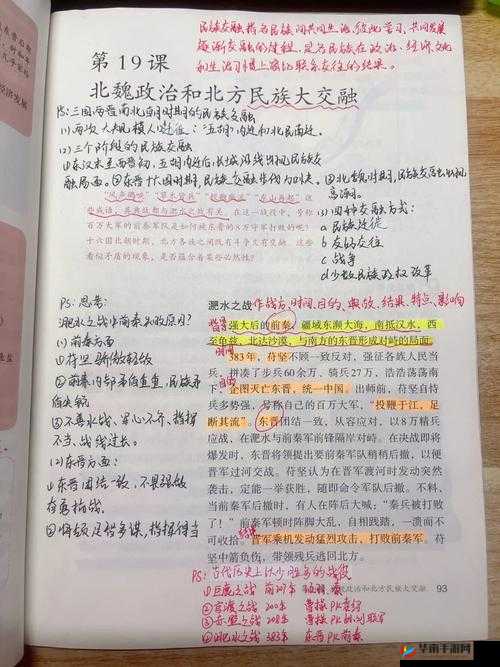 民族交融指各民族间共同生活，彼此学习，共同发展
逐渐交融的过程，是各民族在政治、经济、文化
和生活习惯上密切联系交往的结果。
第19课
北魏政治和北方民族大交融
PS:三国两晋南北朝时期的民族交融
(1)两次大规模人口迁徙："五胡"内迁和北民南迁。
(2)三个阶段的民族交融
①东汉末至西晋初，五胡内迁后，长城沿线出现民族交
融局面。②东晋十六国时期，民族交融
③北魏时期，民族交融出现
高潮。
"风声鹤唳""草木皆兵""投鞭断流""东山再起"这
些成语、典故都与淝水之战有关。在这一战役中，号称
百万大军的前秦军队是如何被东晋的8万守军打败的呢？
十六国北朝时期，北方各族之间既有斗争又有交融，这些
看似矛盾的现象，是否蕴含着某些必然性？
(3)民族交融方式：
a 民族迁徙
b 友好交往
c 战争
d 少数民族政权改革
PS:思考：
淝水之战中前秦失败原因？
(1)前秦方面
①苻坚骄傲轻敌
②前秦内部矛盾重重，民族矛
盾尖锐
③不善水战，军心不齐，指挥
不当，战线过长。
(2)东晋方面：
①东晋团结一致，不畏强敌
奋勇抵战。
②将领足智多谋，指挥得当
淝水之战 作战方、时间、目的、典故、结果、特点、影响
背景
强大后的前秦，疆域东濒大海，南抵汉水，西
至龟兹，北达沙漠，与南方的东晋形成对峙的局面。
时间
383年，苻坚不顾一致反对，强征各族人民当
兵，拼凑了步兵60余万、骑兵27万，浩浩荡荡南
下，目的企图灭亡东晋，统一中国。出师前，苻坚自恃
兵多势强，号称自己的百万大军，"投鞭于江，足
断其流"。东晋团结一致，从容应对，以8万精兵
应战，在淝水与前秦军前锋隔岸对峙。在决战即将
爆发时，东晋将领提出要前秦军队稍稍后撤，以便
晋军过河交战。苻坚认为在晋军渡河时发动突然
袭击，定能一举获胜，随即命令军队后撤。不料，
当前秦军后撤时，有人在阵后大喊："秦兵被打败
了！"前秦军顿时阵脚大乱，自相践踏，一溃而不
可收拾。晋军乘机发动猛烈攻击，打败前秦军。苻
结果
坚中箭负伤，带领残兵逃回北方。
PS:古代历史上以少胜多的战役
政治和北方民族大交融 93
①巨鹿之战 前207年
②官渡之战 200年 曹操PK袁绍
③赤壁之战 208年 曹操PK孙刘联军
④淝水之战 383年 东晋PK前秦
华南手游网